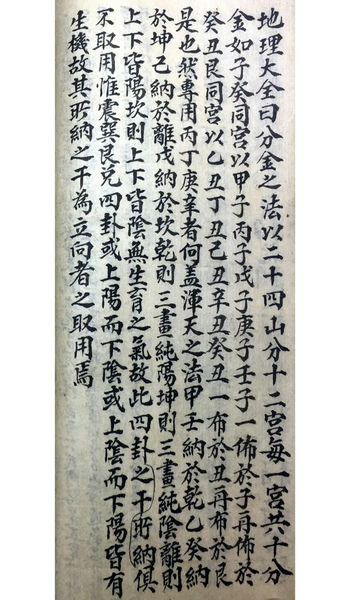 地理大全曰分金之法以二十四山分十二宮每一宮共十分
金如子癸同宮以甲子丙子戊子庚子壬子一佈於子再佈於
癸丑艮同宮以乙丑丁丑己丑辛丑癸丑一布於丑再布於艮
是也然專用丙丁庚辛者何盖渾天之法甲壬納於乾乙癸納
於坤己納於離戊納於坎乾則三畫純陽坤則三畫純陰離則
上下皆陽坎則上下皆陰無生育之氣故此四卦之干所納俱
不取用惟震巽艮兌四卦或上陽而下陰或上陰而下陽皆有
生機故其所納之干為立向者之取用焉